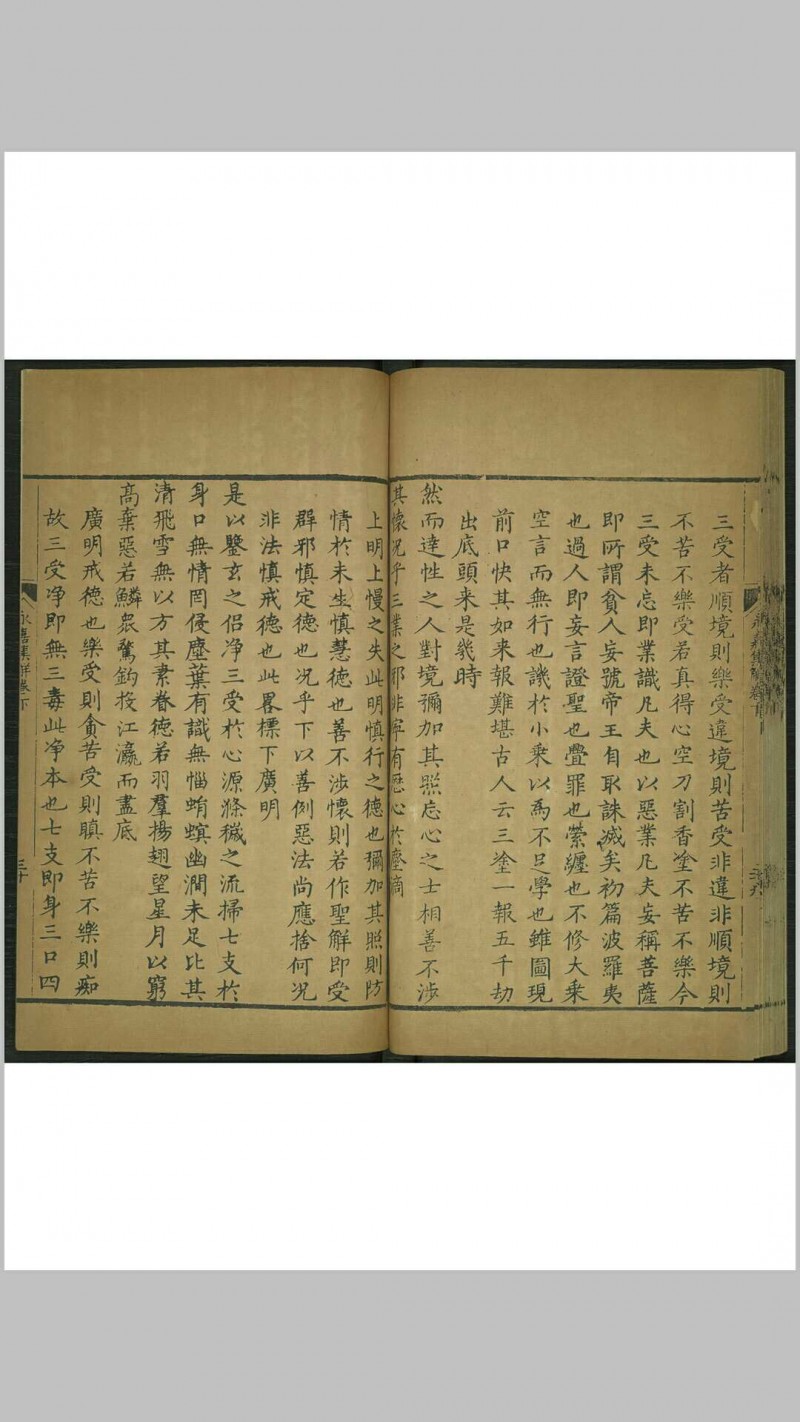 三受者順境則樂受違境則苦受非違非順境則
不苦不樂受若真得心空刀割香塗不苦不樂今
三受未忘即業識凡夫也以惡業凡夫妄稱菩薩
即所謂貧人妄號帝王自取誅滅矣初篇波羅夷
也過人即妄言證聖也疊罪也縈纏也不修大乘
空言而無行也譏於小乘以為不足學也雖圖現
前口快其如来報難堪古人云三塗一報五千劫
出底頭来是幾時
然而達性之人對境彌加其照忘心之士相善不涉
其懷况乎三業之邪非寧有歷心於塵滴
上明上慢之失此明慎行之德也彌加其照則防
情於未生慎慧德也善不涉懷則若作聖解即受
群邪慎定德也况乎下以善例惡法尚應捨何况
非法慎戒德也此畧標下廣明
是以鑒玄之侶净三受於心源滌穢之流掃七支於
身口無情罔侵塵葉有識無惱蜎螟幽澗未足比其
清飛雪無以方其素眷德若羽羣揚翅望星月以窮
高棄惡若鱗衆驚鈎投江瀛而盡底
廣明戒德也樂受則貪苦受則瞋不苦不樂則痴
故三受净即無三毒此净本也七支即身三口四
永嘉集註卷下
三十